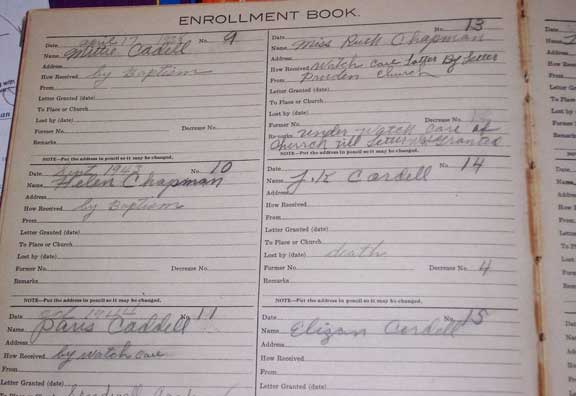 ENROLLMENT BOOK.
Date April 17 1928 No. 9
Name Mittie Cadell
Address
How Received by Baptism
From
Letter Granted (date)
To Place or Church
Lost by (date)
Former No. Decrease No.
Remarks
NOTE—Put the address in pencil so it may be changed.
Date Sept 1943 No. 10
Name Helen Chapman
Address
How Received by Baptism
From
Letter Granted (date)
To Place or Church
Lost by (date)
Former No. Decrease No.
Remarks
NOTE—Put the address in pencil so it may be changed.
Date 1944 No. 11
Name Paris Caddell
Address
How Received by watch care
From
Letter Granted (date)
Date No. 13
Name Miss Ruth Chapman
Address
How Received Watch Care Letter By Letter
From Pruden Church
Letter Granted (date)
To Place or Church
Lost by (date)
Former No. Decrease No.
Remarks under watch care of
Church till Letter is granted
NOTE—Put the address in pencil so it may be changed.
Date No. 14
Name J.K Cordell
Address
How Received
From
Letter Granted (date)
To Place or Church
Lost by (date) death
Former No. Decrease No. 4
Remarks
NOTE—Put the address in pencil so it may be changed.
Date No. 15
Name Elizan Cordell
Address
How Received
From
Letter Granted (date)